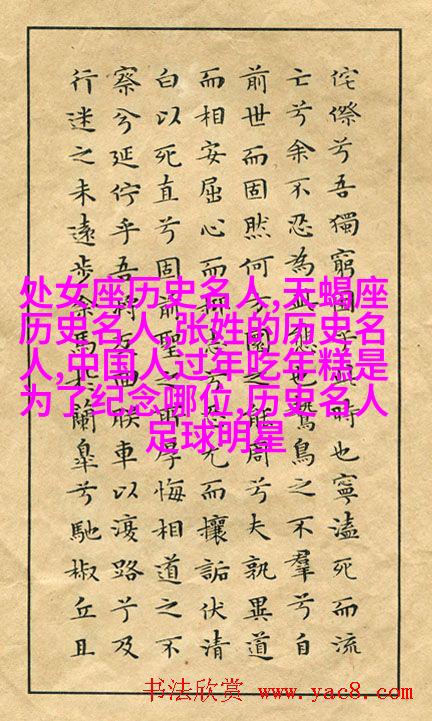 侘傺兮吾獨窮困乎此時也寧溘死而流
亡兮余不忍為此態也鷙鳥之不羣兮自
前世而固然何方圜之能周兮夫孰異道
而相安屈心而抑志兮忍尤而攘詬伏清
白以死直兮固前聖之所厚悔相道之不
察兮延佇乎吾將反回朕車以復路兮及
行迷之未遠步余馬於蘭皐兮馳椒丘且
处女座历史名人,天蝎座
历史名人,张姓的历史名
人,中国人过年吃年糕是
为了纪念哪位,历史名人
足球明星
书法欣赏 www.yac8.com